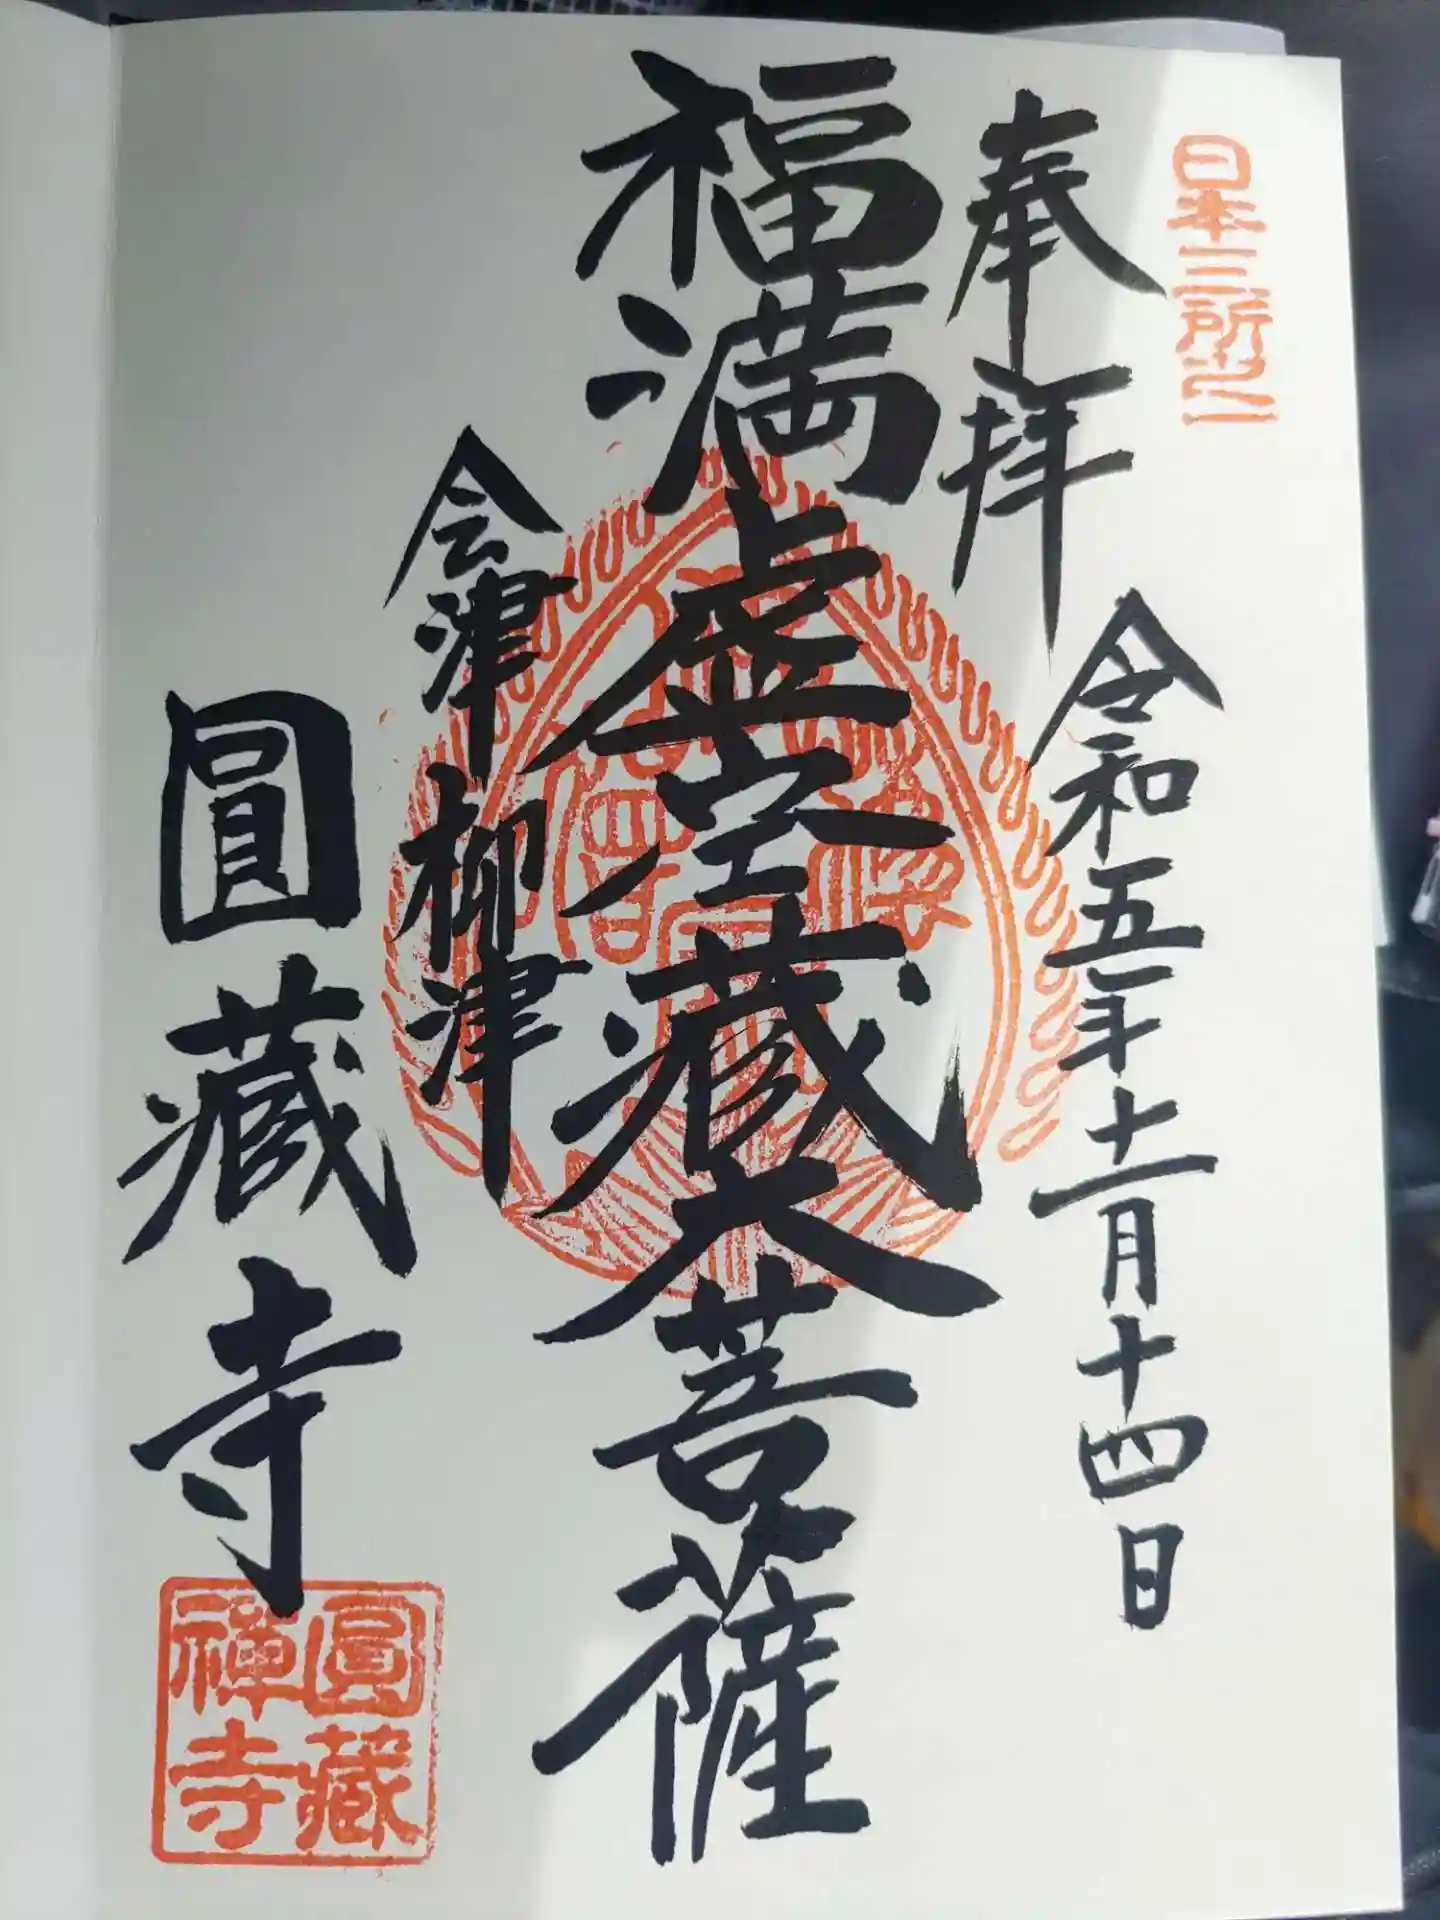 日本三所之一
奉拝
令和五年十一月十四日
福満虚空藏大菩薩
会津柳津
圓藏寺
圓藏
禅寺